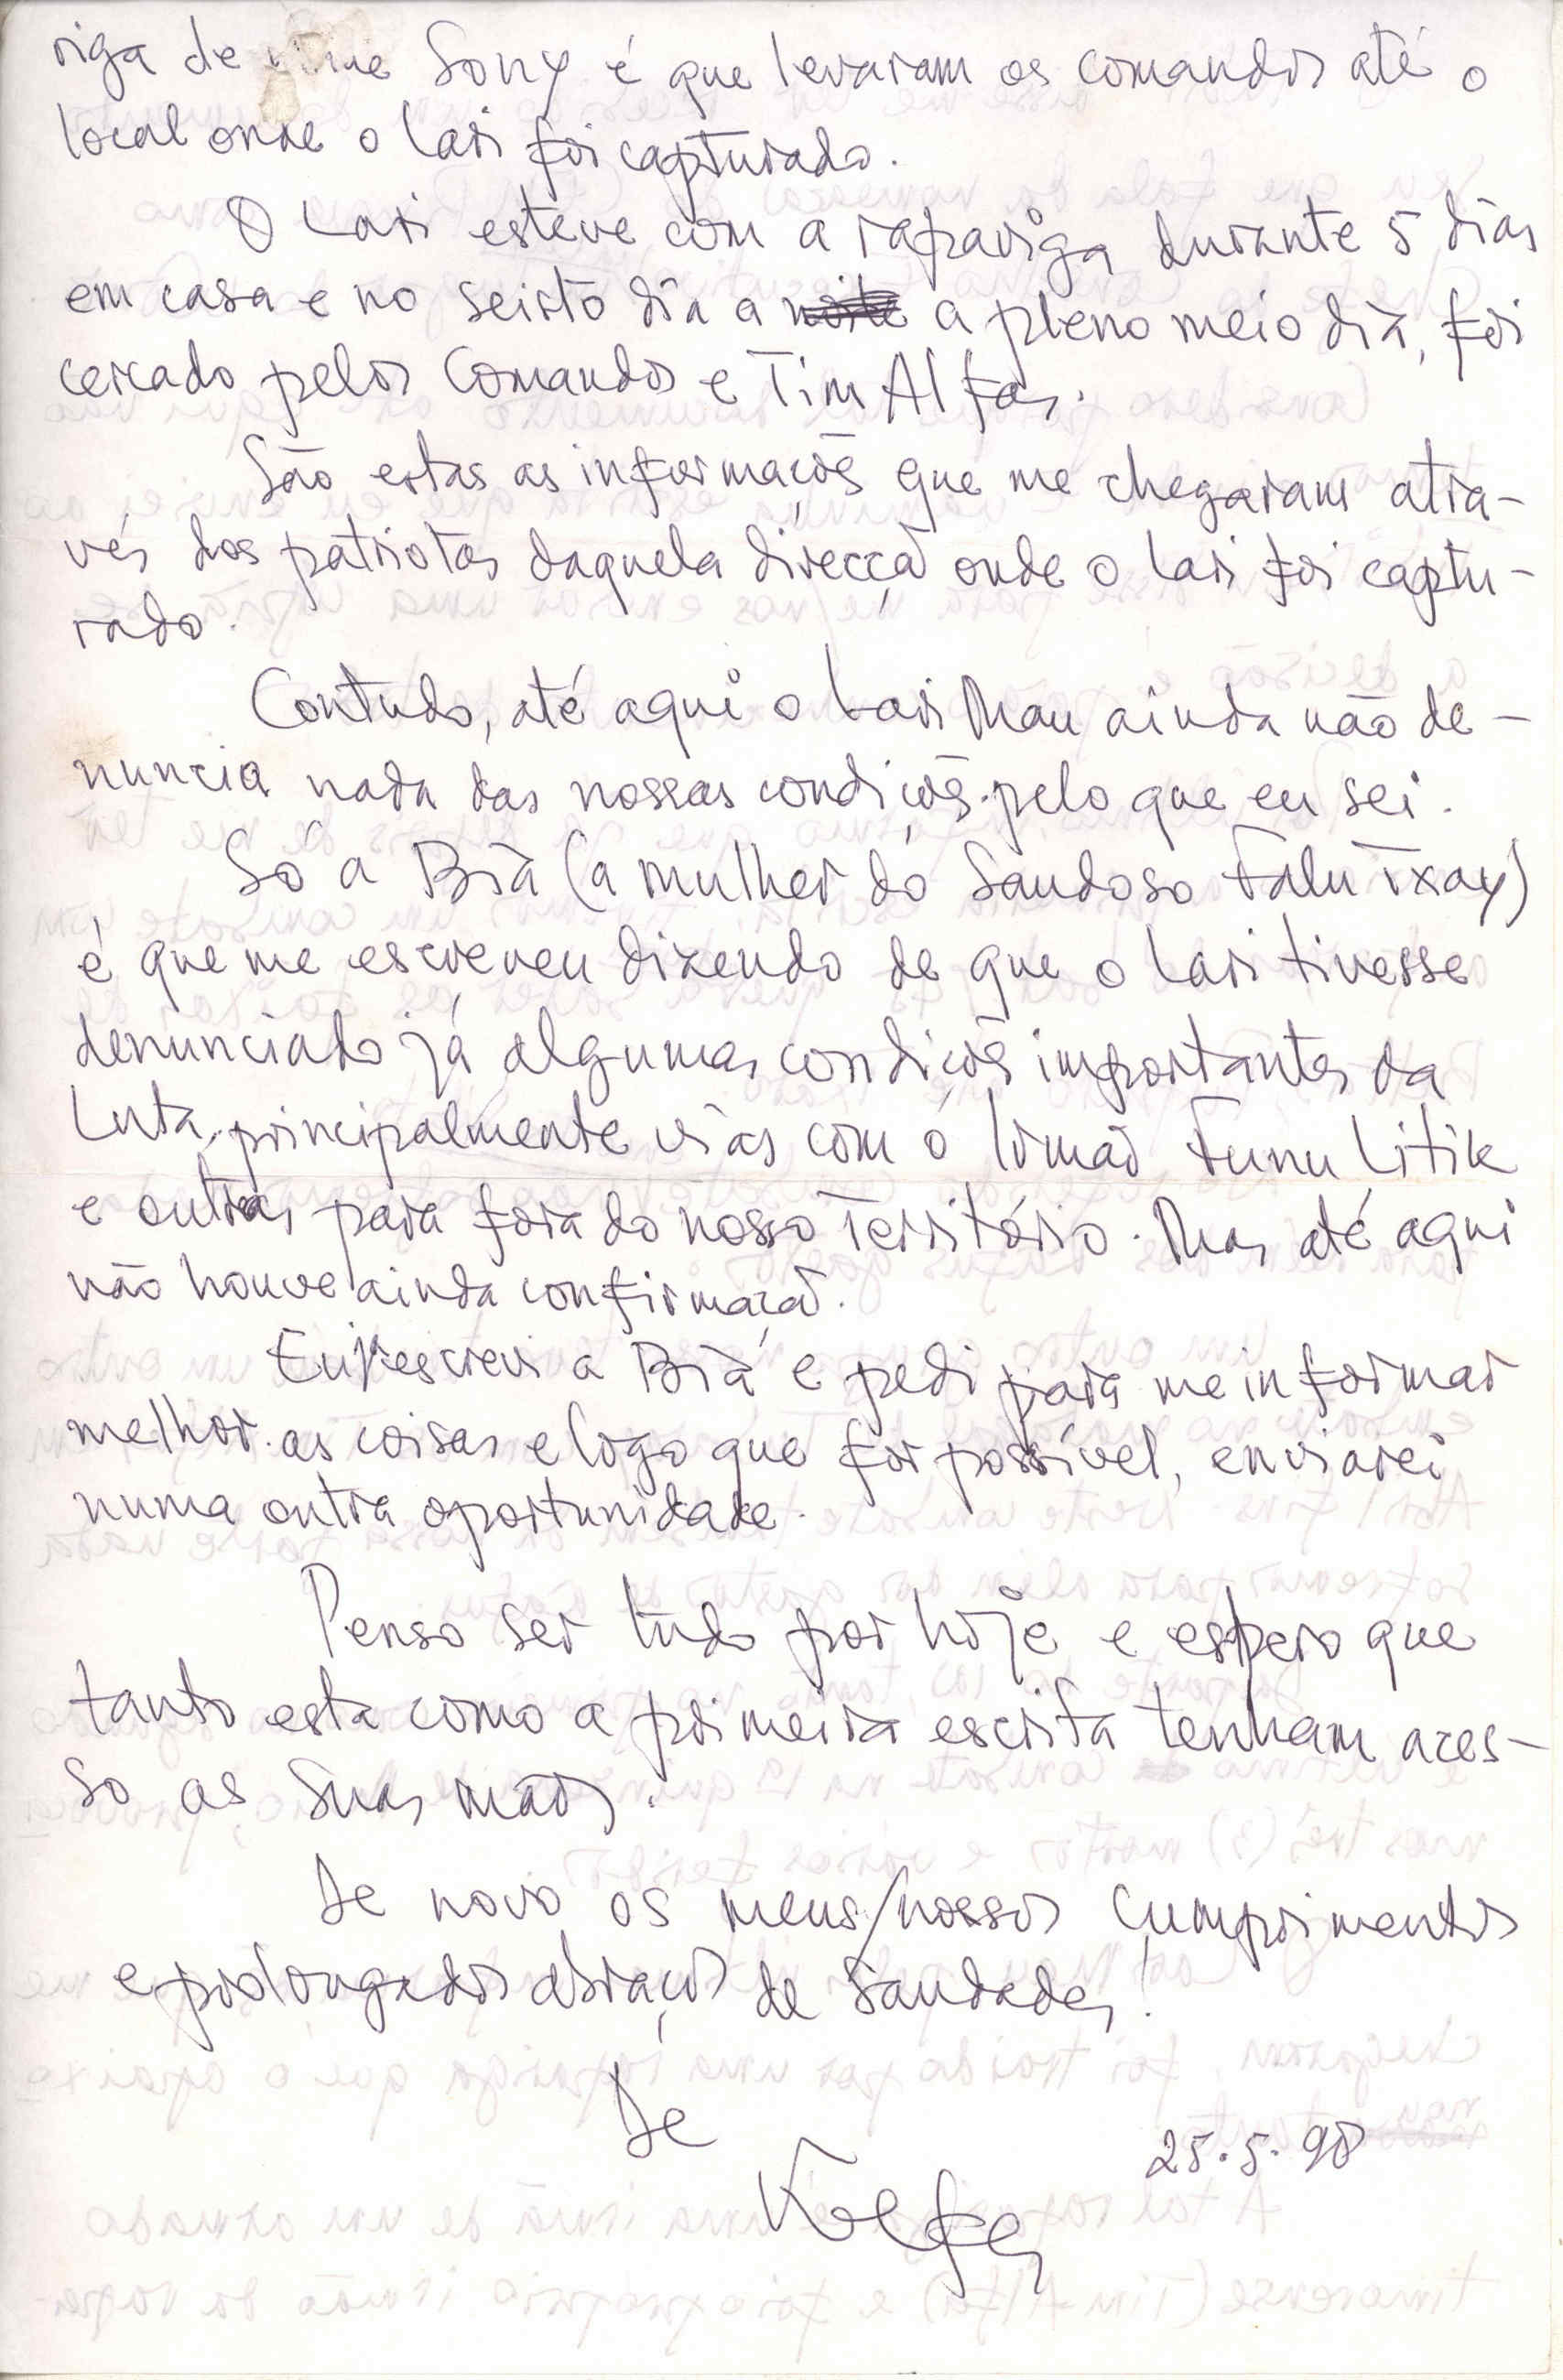 riga de nome Sony é que levaram os comandos até o
local onde o Lari foi capturado.
O Lari esteve com a rapariga durante 5 dias
em casa e no seisto dia a noite a pleno meio dia, foi
cercado pelos Comandos e Tim Alfas.
São estas as informações que me chegaram atra-
vés dos patriotas daquela direcção onde o Lari foi captu-
rado.
Contudo, até aqui o Lari Mau ainda não de-
nuncia nada das nossas condições pelo que eu sei.
Só a Bià (a mulher do Saudoso Falu Txay)
é que me escreveu dizendo de que o Lari tivesse
denunciado já algumas condições importantes da
Luta, principalmente vias com o Irmão Funu Litik
e outras para fora do nosso Território. Mas até aqui
não houve ainda confirmação.
Eu escrevi a Bià e pedi para me informar
melhor as coisas e logo que for possível, enviarei
numa outra oportunidade.
Penso ser tudo por hoje e espero que
tanto esta como a primeira escrita tenham aces-
so as Suas mãos.
De novo os meus/nossos Cumprimentos
e prolongados abraços de Saudades!
De
25.5.98